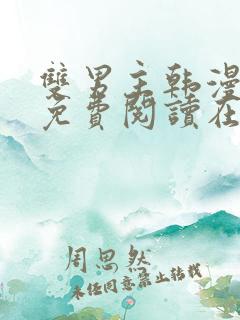 雙男主韩漫
免費閱讀在
周思然
未经同意禁止转载